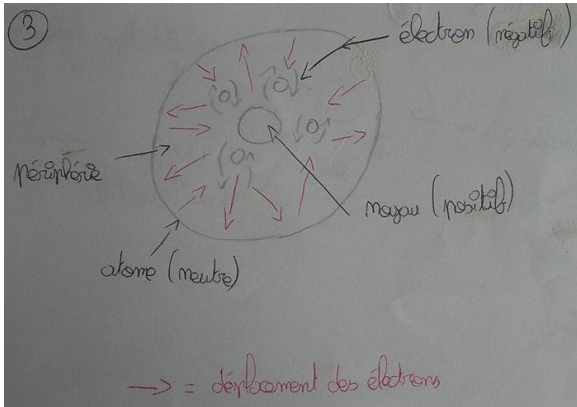 3
électron (négatif)
périphérie
noyau (positif)
atome (neutre)
→ = déplacement des électrons